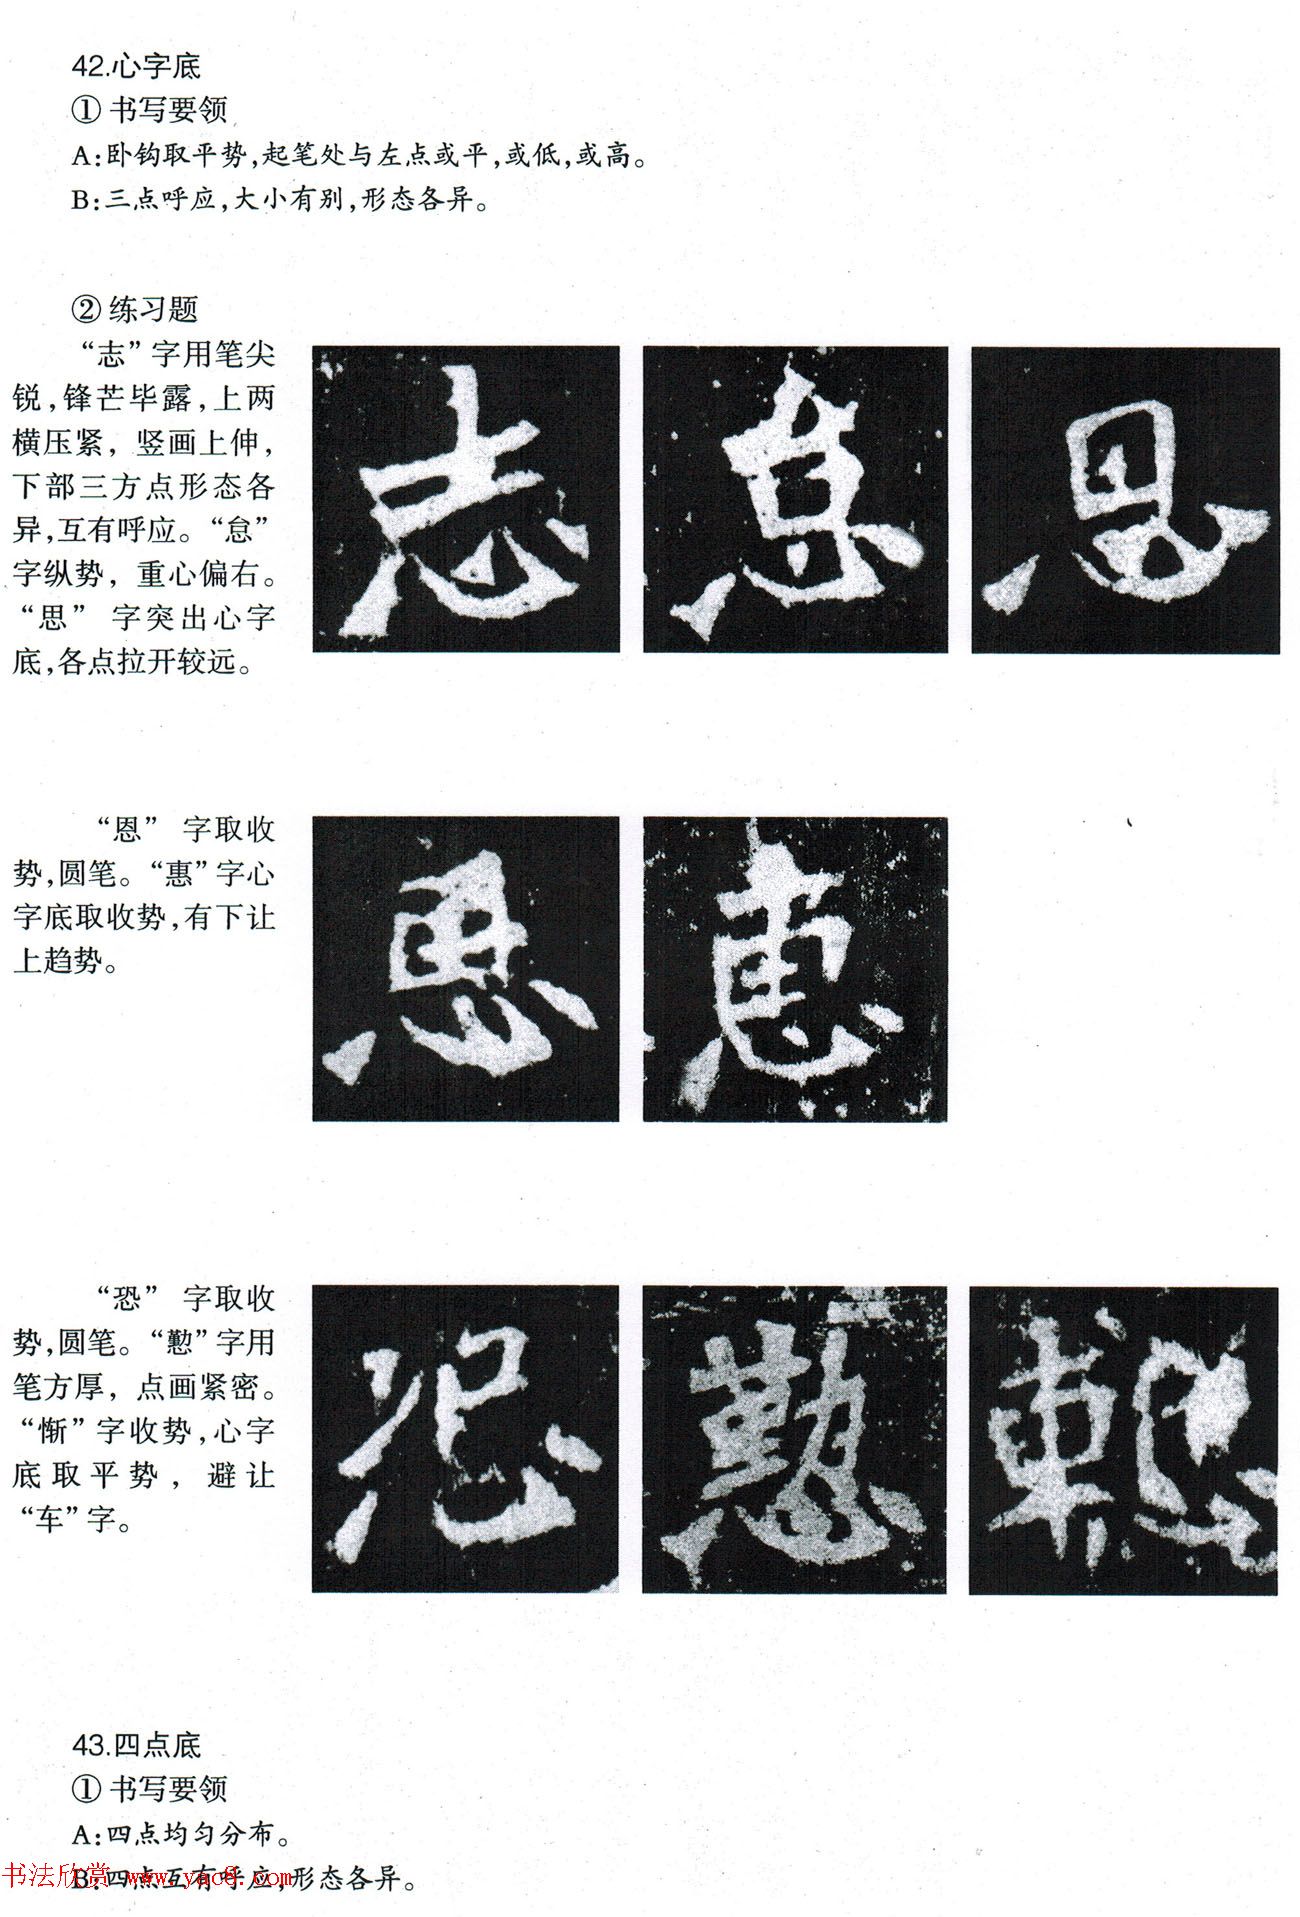 42.心字底
① 书写要领
A:卧钩取平势,起笔处与左点或平,或低,或高。
B:三点呼应,大小有别,形态各异。
② 练习题
“志”字用笔尖
锐,锋芒毕露,上两
横压紧，竖画上伸,
下部三方点形态各
异,互有呼应。“怠”
字纵势，重心偏右。
“思” 字突出心字
底,各点拉开较远。
志 怠 恩
“恩” 字取收
势,圆笔。“惠”字心
字底取收势,有下让
上趋势。
惠 惠
“恐” 字取收
势,圆笔。“懃”字用
笔方厚，点画紧密。
“惭”字收势,心字
底取平势，避让
“车”字。
恐 懃 慙
43.四点底
① 书写要领
A:四点均匀分布。
B:四点互有呼应,形态各异。
书法欣赏 www.yac8.com